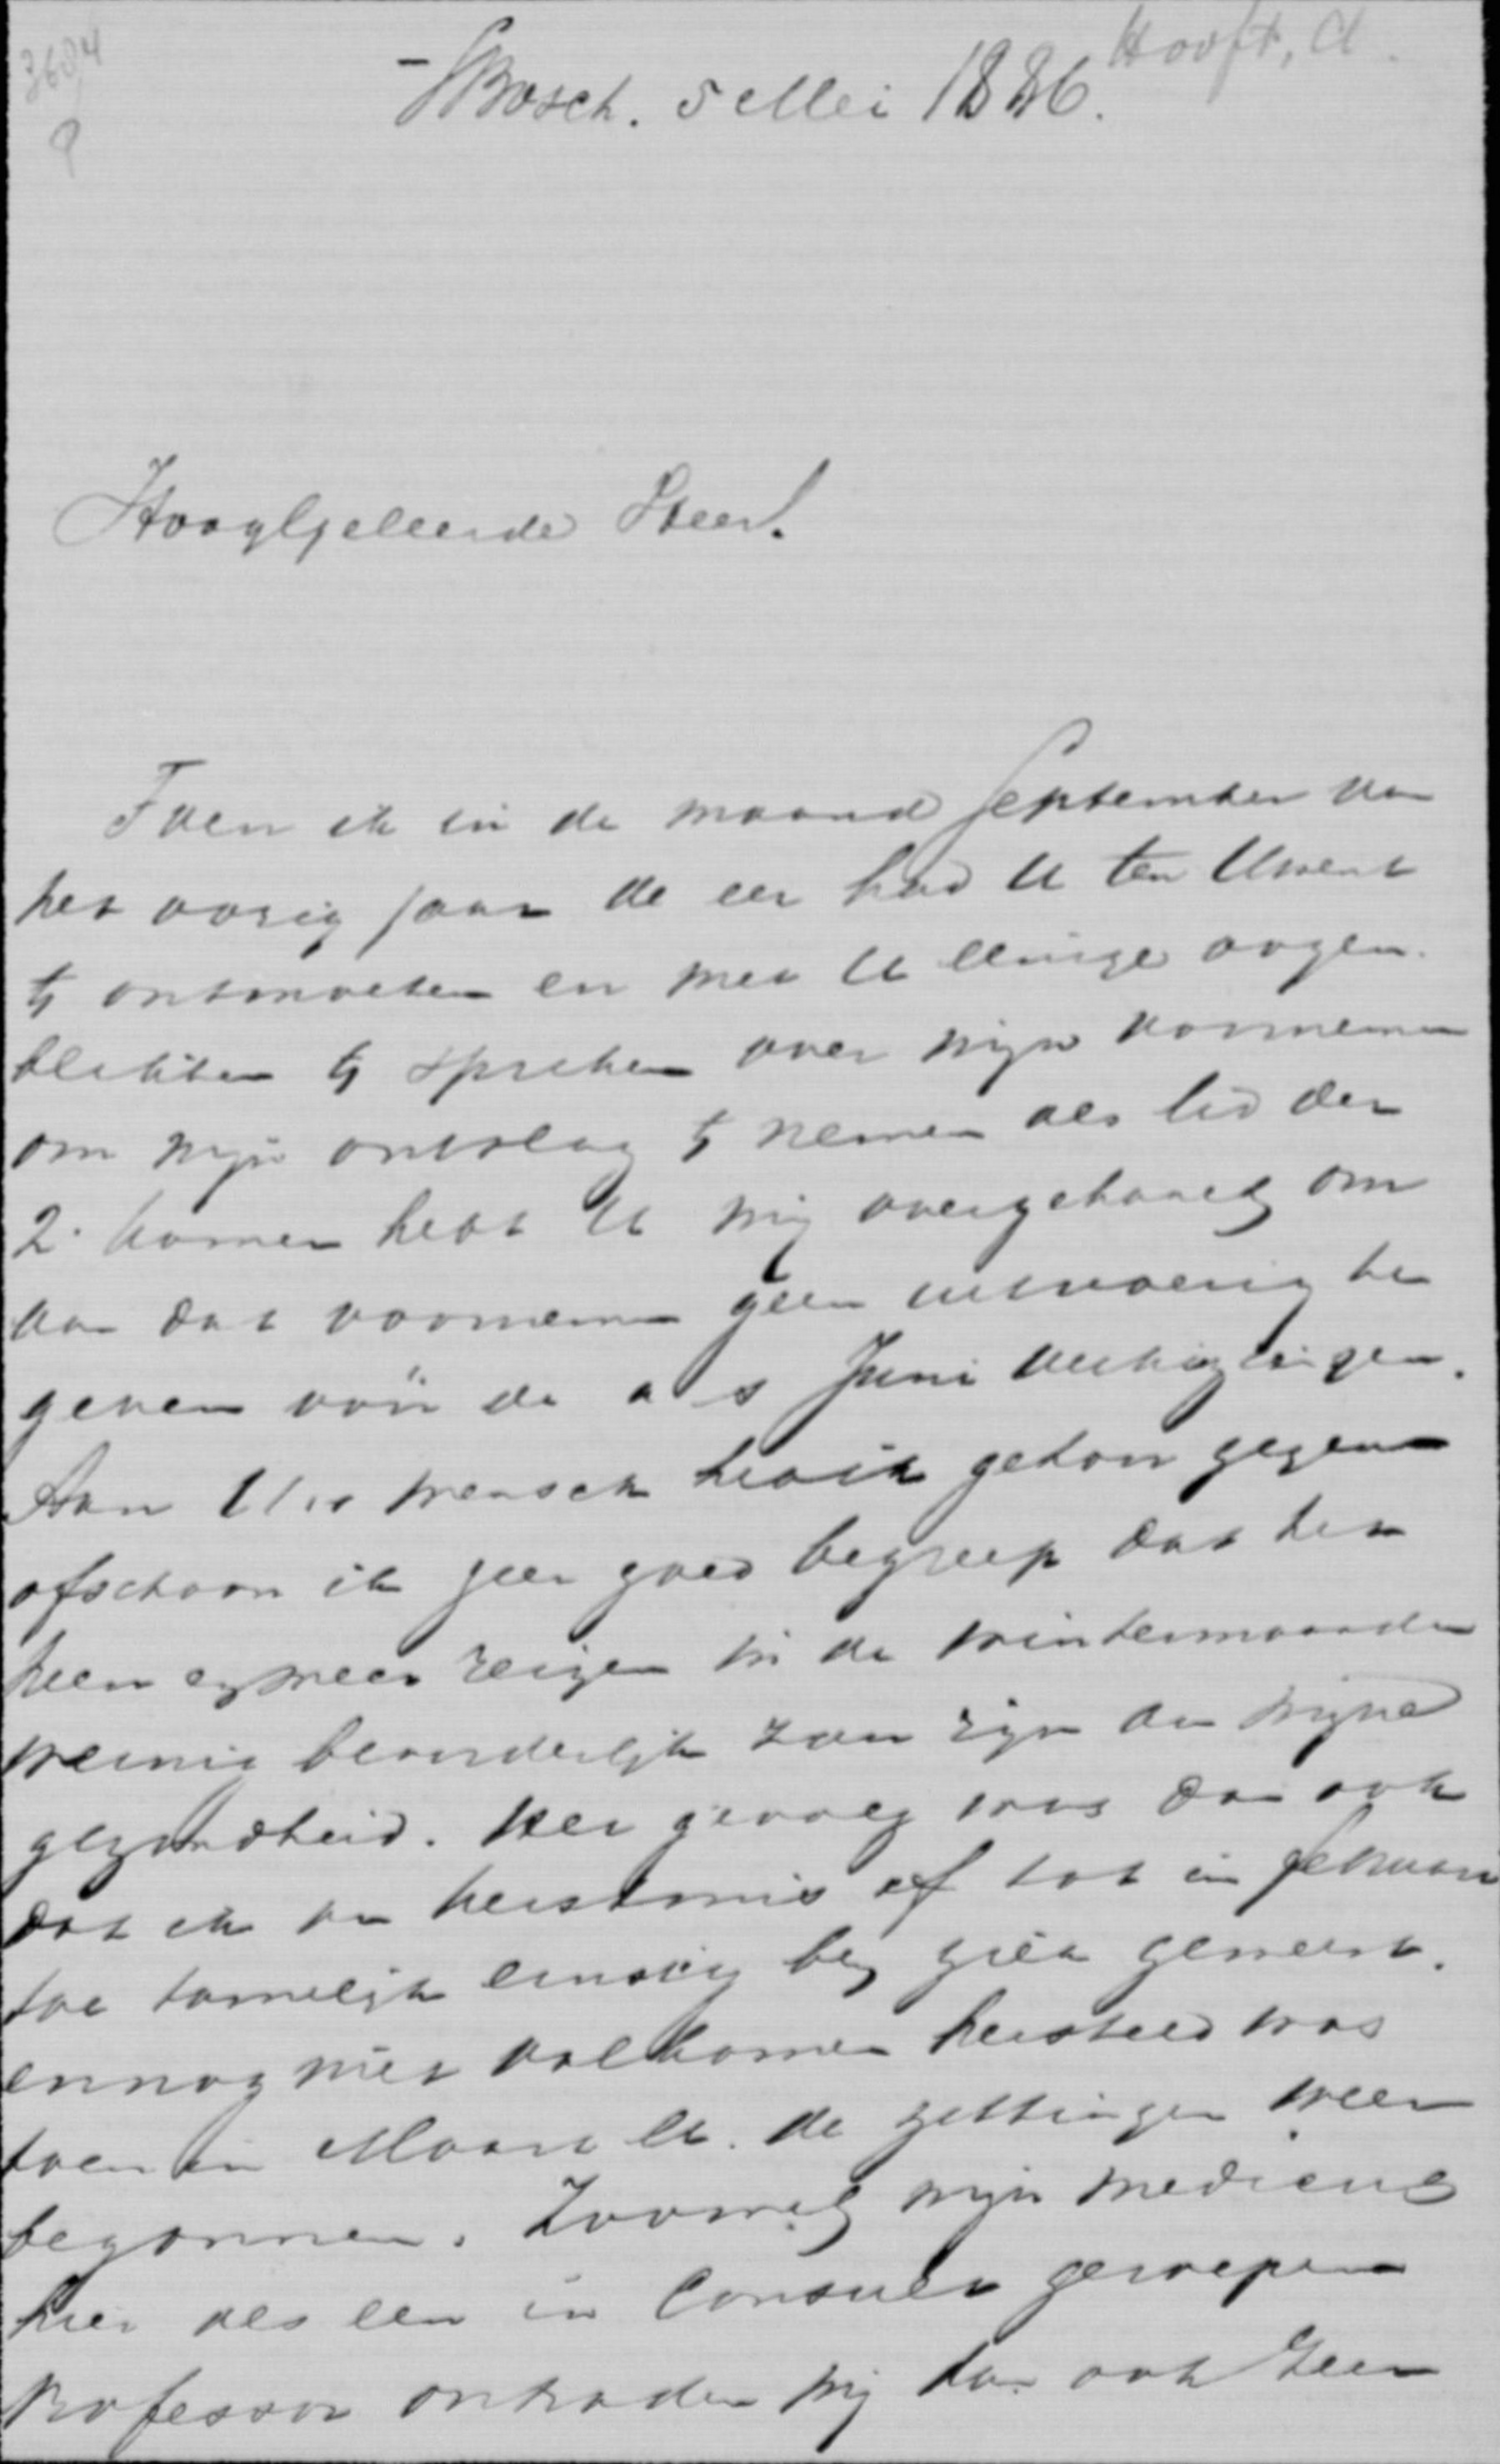 3684 Hooft, A.
's Bosch. 5 Mei 1886.
Hooggeleerde Heer!
Toen ik in de maand September van
het vorig jaar de eer had U ten Uwent
te ontmoeten en met U eenige oogen-
blikken te spreken over mijn voornemen
om mijn ontslag te nemen als lid der
2e kamer hebt U mij overgehaald om
aan dat voornemen geen uitvoering te
geven vóór de a s Juni verkiezingen.
Aan Uw wensch heb ik gehoor gegeven
ofschoon ik zeer goed begreep dat het
heen en weer reizen in de wintermaanden
weinig bevorderlijk zou zijn aan mijne
gezondheid. Het gevolg was dan ook
dat ik van kerstmis af tot in februari
toe tamelijk ernstig ben ziek geweest.
en nog niet volkomen hersteld was
toen in Maart ll. de zittingen weer
begonnen. Zoowel mijn medicus
hier als een in Consult geroepen
Professor ontraden mij dan ook zeer